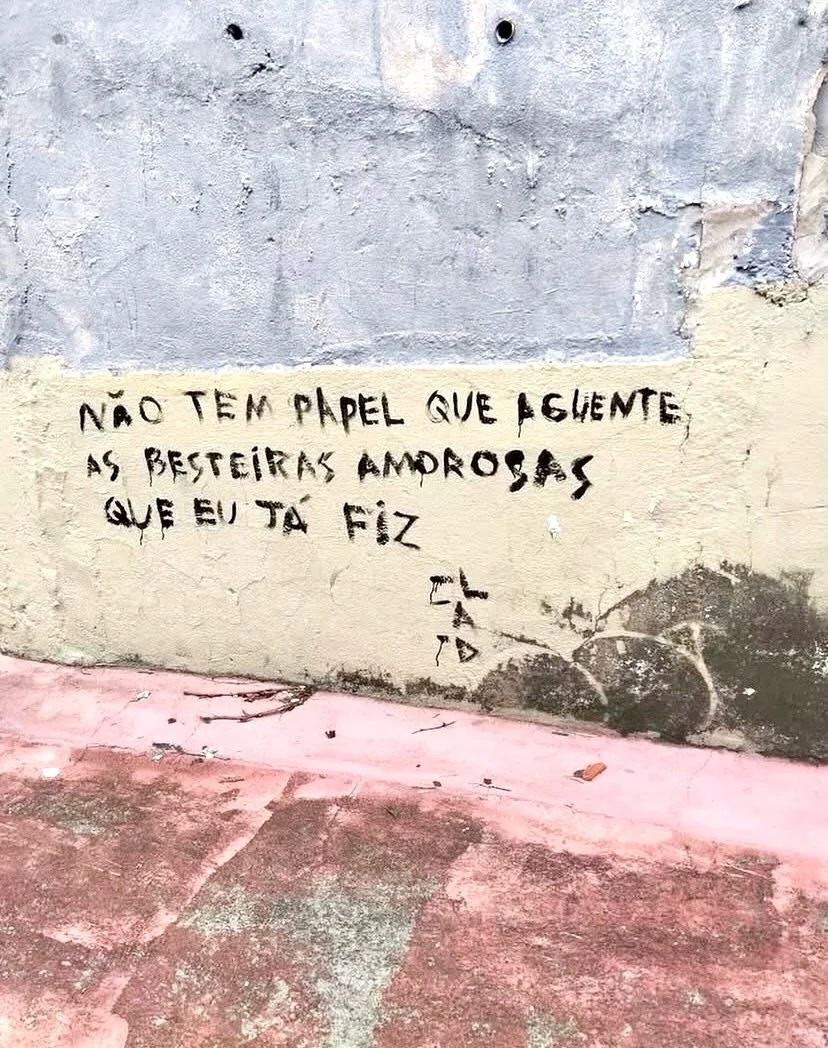 NÃO TEM PAPEL QUE AGÜENTE,
AS BESTEIRAS AMOROSAS
QUE EU JÁ FIZ